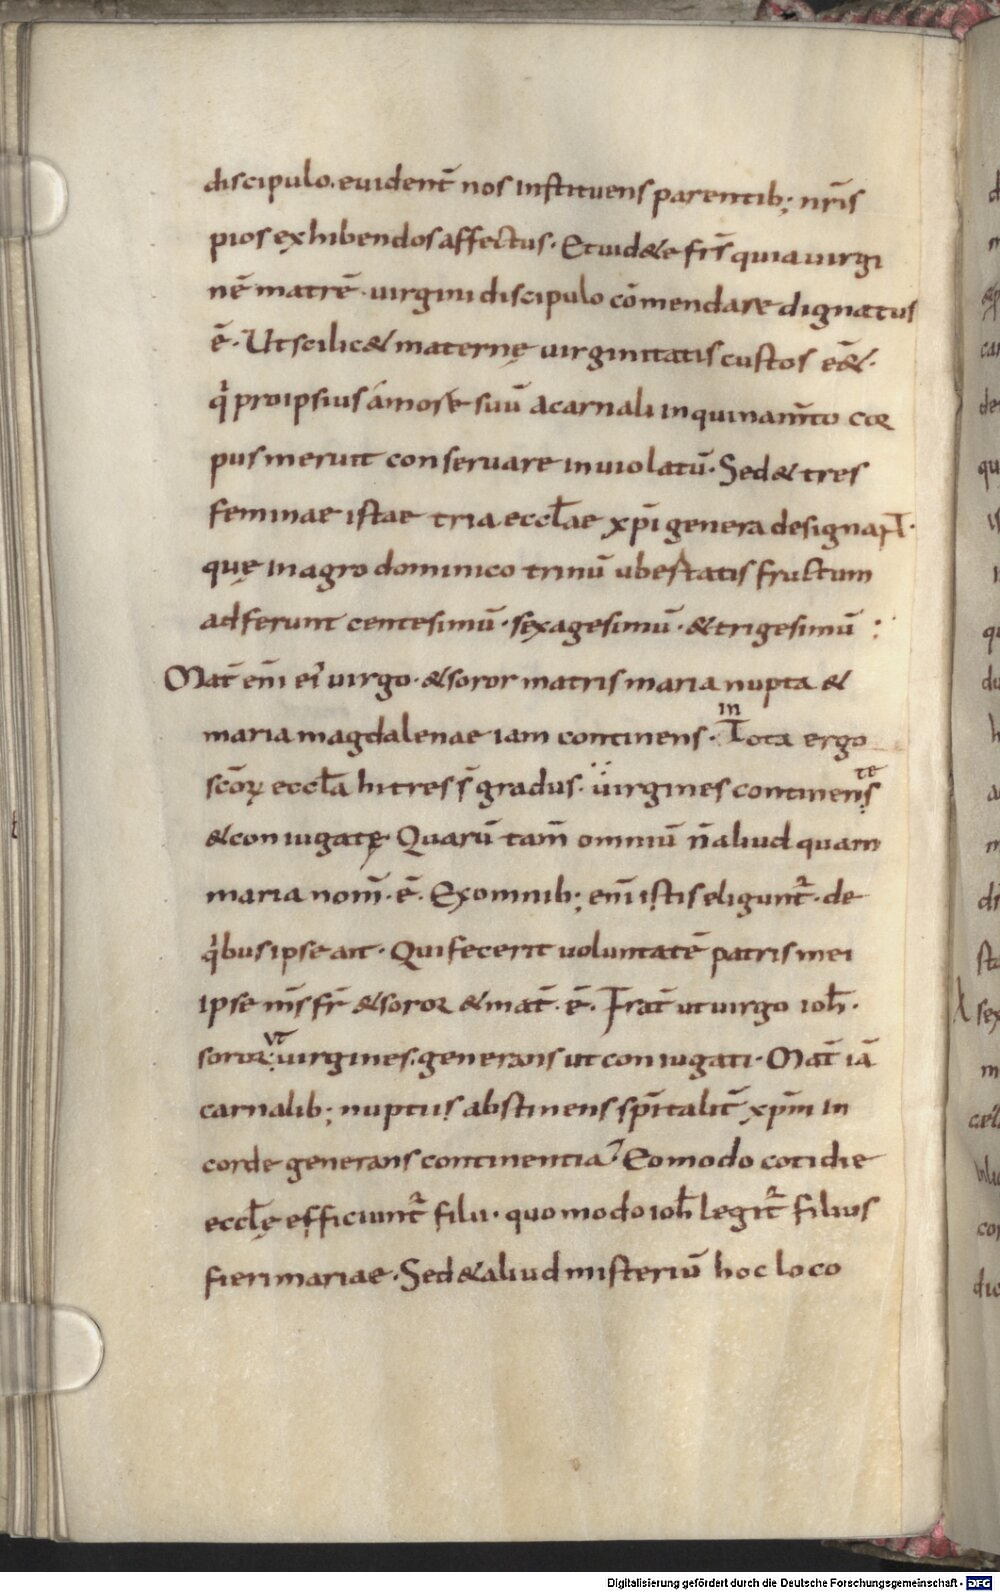 discipulo. euident̄ nos instituens parentib; nr̄is
pios exhibendos affectus. Et uid&e fr̄s quia uirgi
nē matrē. uirgini discipulo cōmendare dignatus
ē. Ut scilic& maternę uirginitatis custos eē&.
q̇ pro ipsius amore suū a carnali inquinam̄to cor
pus meruit conseruare inuiolatū. Sed & tres
feminae istae tria eccl̄ae xp̄i genera designant.
quę in agro dominico trinū ubertatis fructum
adferunt centesimū. sexagesimū. & trigesimū :
Mat̄ em̄ ei' uirgo. & soror matris maria nupta &
maria magdalenae iam continens. In Tota ergo
sc̄oꝝ eccl̄a hi tres s̄ gradus. uirgines continentes
& coniugatę. Quarū tam̄ omniū n̄ aliud quam
maria nom̄. ē. Ex omnib; em̄ istis eligunt̄. de
q̇bus ipse ait. Qui fecerit uoluntatē patris mei
ipse m̄s fr̄ & soror & mat̄. ē. Frat̄ ut uirgo ioh̄.
soror ut uirgines. generans ut coniugati. Mat̄ iā
carnalib; nuptiis abstinens sp̄italit̄ xp̄m in
corde generans continentia. Eo modo cotidie
eccl̄ę efficiunt̄ filii. quomodo ioh̄ legit̄ filius
fieri mariae. Sed & aliud misteriū hoc loco
Digitalisierung gefördert durch die Deutsche Forschungsgemeinschaft - DFG